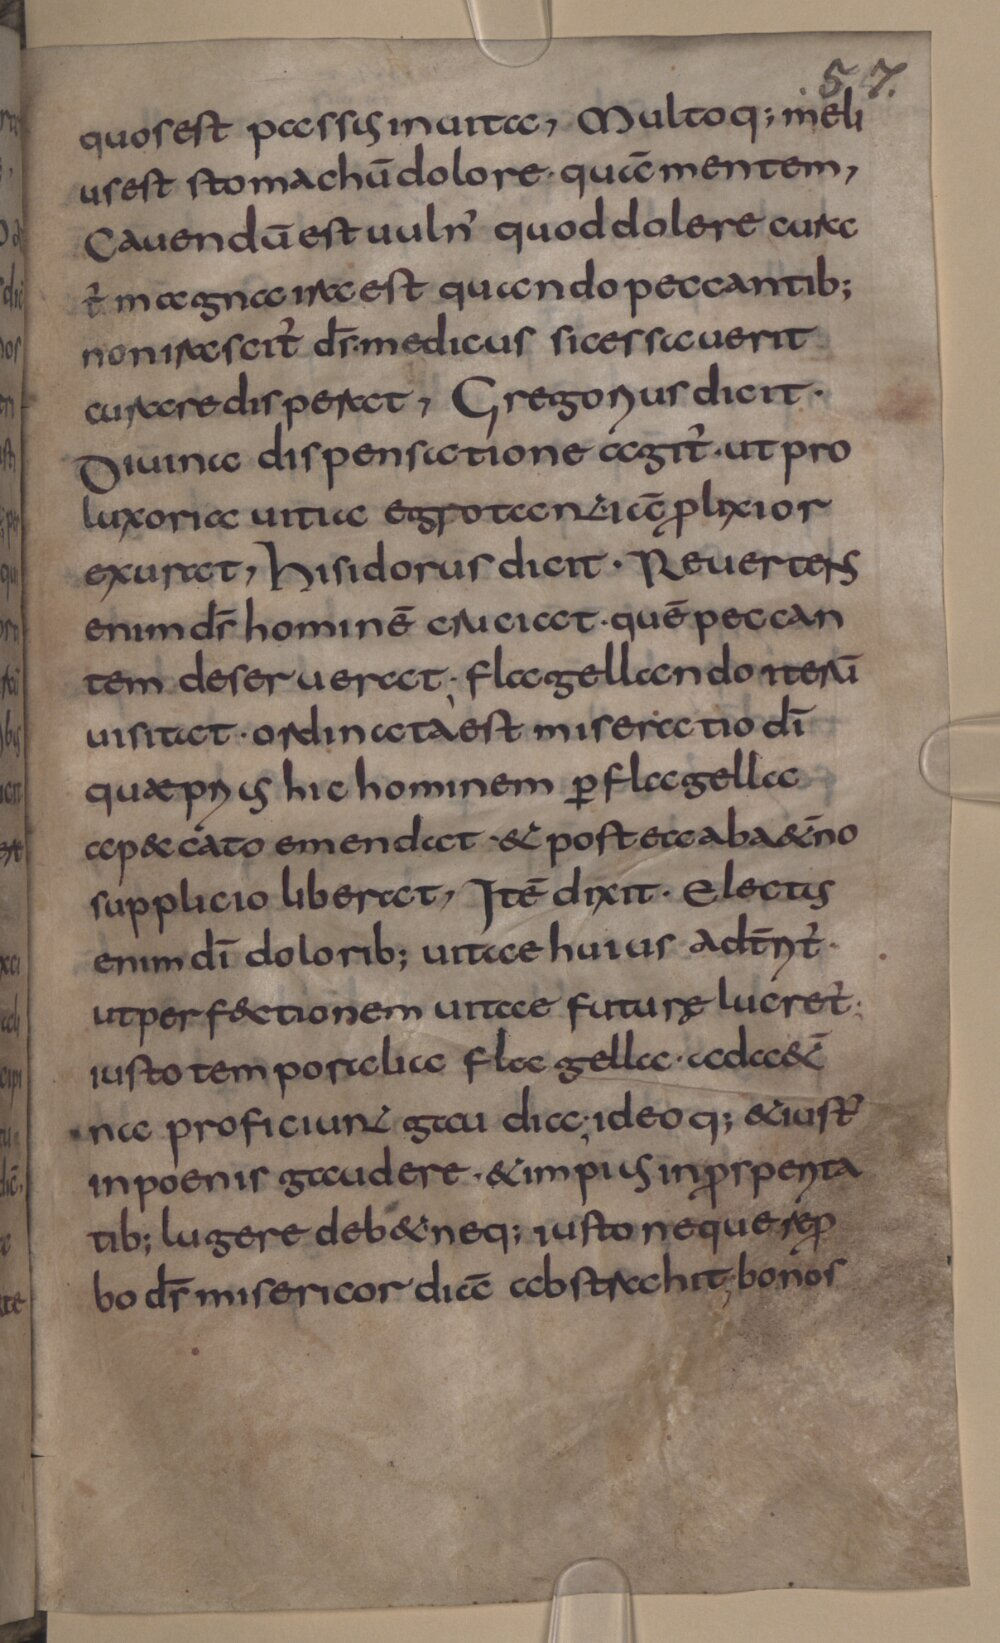 57.
quos est passus in uita, Multoq; meli
us est stomachū dolore· quā mentem,
Cauendū est uuln᾽ quod dolere cura
t᾽ magna ira est quando peccantib;
non irascit᾽ ds̄· medicus si cessauerit
curare disperat, Gregorius dicit·
Diuina dispensatione agit᾽· ut pro
luxoria uitia egrotant· iā plixior
exurat, Hisidorus dicit· Reuertens
enim ds̄ hominē cruciat· quē peccan
tem deseruerat· flagellando iterū
uisitat· ordinata est miseratio dī
quæ prius hic hominem p̱ flagella
a p&cato emendat· & post ea ab a&̄no
supplicio liberat, Itē dixit· Electis
enim dī dolorib; uitae huius adtīnt᾽·
ut perf&tionem uitae futurę lucret᾽·
iusto temporalia flagella· ad a&̄
na proficiunt gaudia· ideoq; & iust᾽
in poenis gaudere· & impius in prosperita
tib; lugere deb& neq; iusto neque rep
bo ds̄ misericordiā abstrahit· bonos